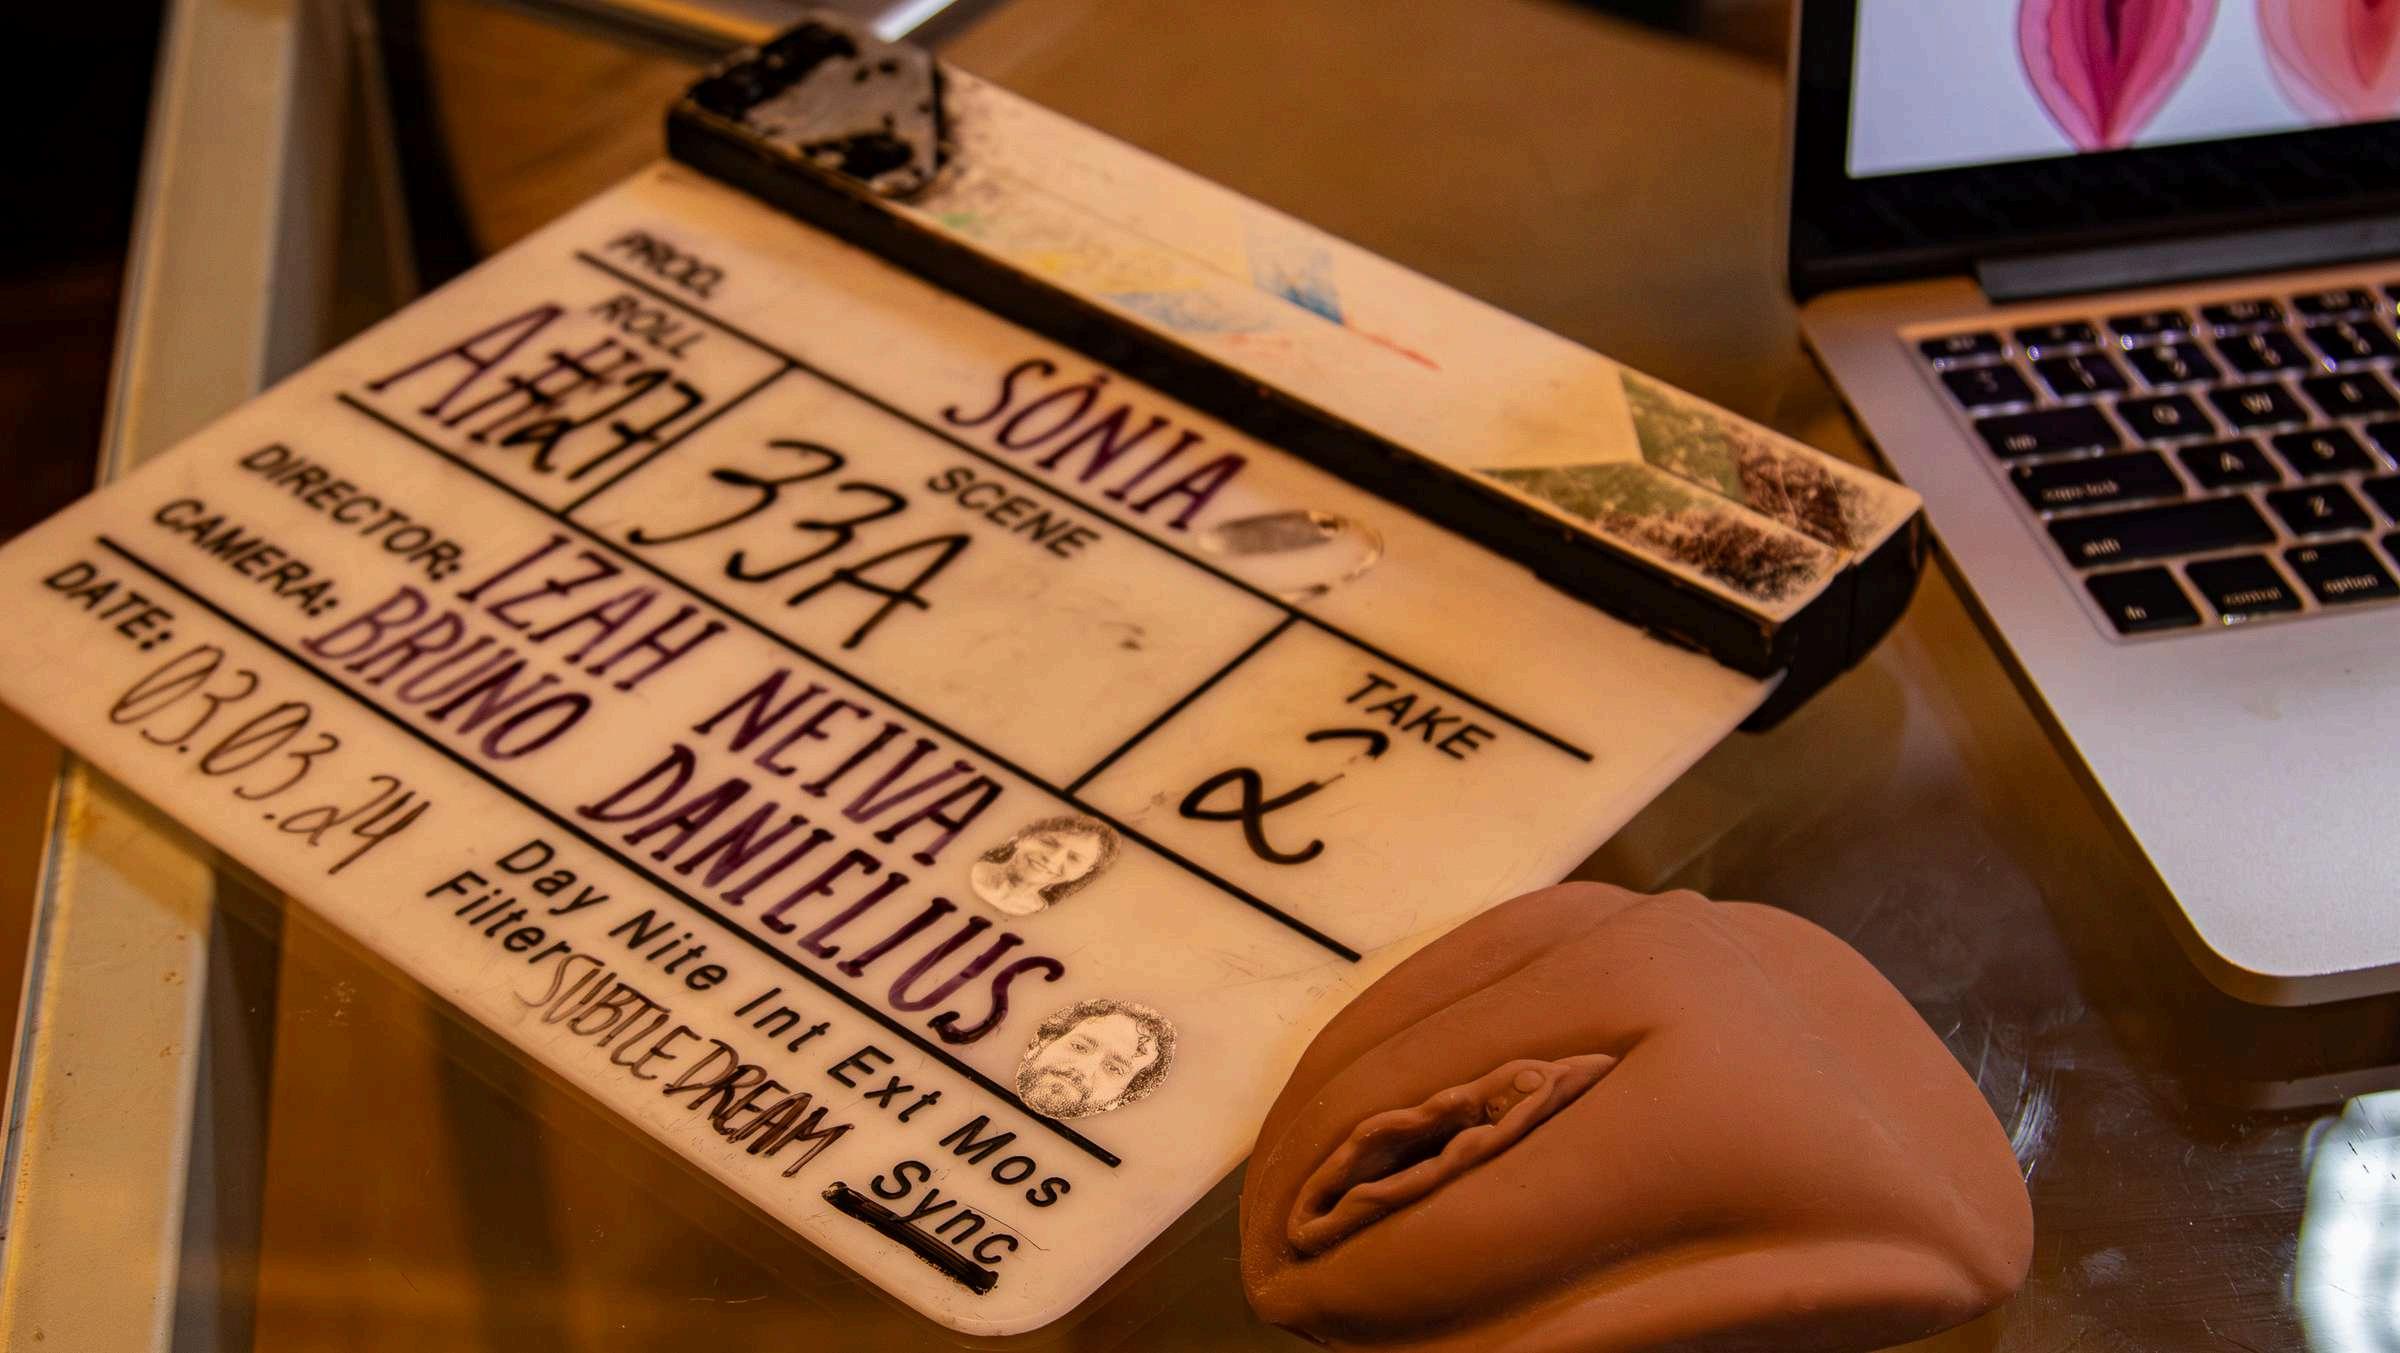 PROD. SÔNIA
ROLL A#27
SCENE 33A
TAKE 2
DIRECTOR: IZAH NEIVA
CAMERA: BRUNO DANIELIUS
DATE: 03.03.24
Day Nite Int Ext Mos
Filter SUBTLE DREAM Sync
Q W
tab
A S
caps lock
Z
shift
fn control option